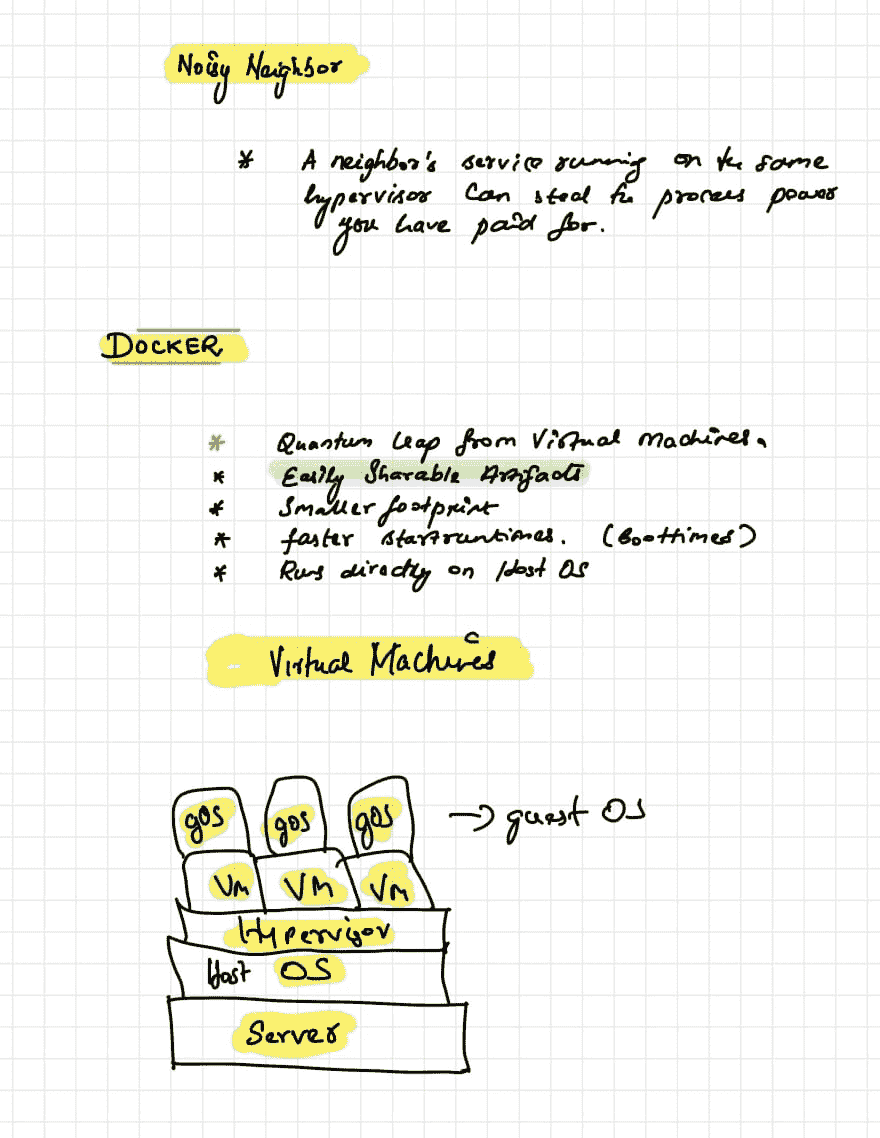 Noisy Neighbor
* A neighbor's service running on the same
hypervisor can steal the process power
you have paid for.
DOCKER
* Quantum leap from Virtual Machines.
* Easily Sharable Artifacts
* Smaller footprint
* faster startruntimes. (Boottimes)
* Runs directly on Host OS
Virtual Machines
gOS gOS gOS → guest OS
VM VM VM
Hypervisor
Host OS
Server